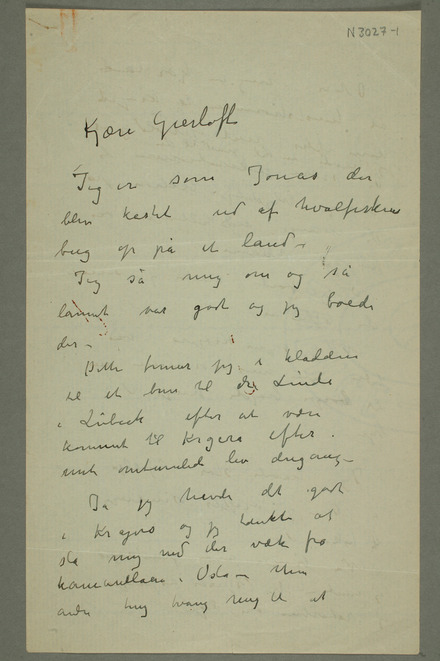 N 3027-1
Kjære Gierløff
Jeg er som Jonas der
blev kastet ud af hvalfiskens
bug op på et land –
Jeg så mig om og så
landet var godt og jeg boede
der –
Dette finner jeg i kladden
til et brev til Dr Linde
i Lübeck efter at være
kommet til Kragerø efter
mit omtumlede liv dengang –
Ja jeg havde det godt
i Kragerø og jeg tænkte at
slå mig ned der væk fra
kameraderne i Oslo – Men
andre ting tvang mig til at